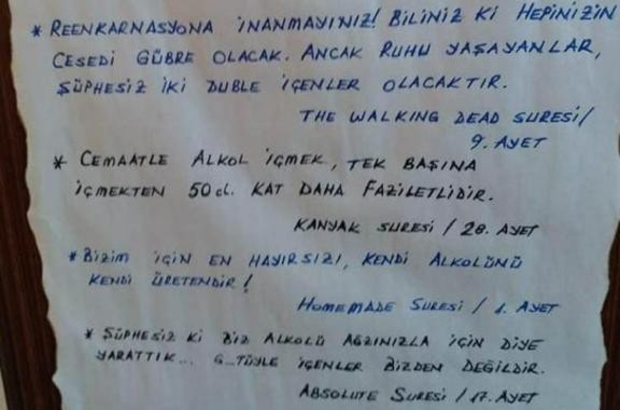 * REENKARNASYONA İNANMAYINIZ! BİLİNİZ Kİ HEPİNİZİN
CESEDİ GÜBRE OLACAK. ANCAK RUHU YAŞAYANLAR,
ŞÜPHESİZ İKİ DUBLE İÇENLER OLACAKTIR.
THE WALKING DEAD SURESİ/
9. AYET
* CEMAATLE ALKOL İÇMEK, TEK BAŞINA
İÇMEKTEN 50 cl. KAT DAHA FAZİLETLİDİR.
KANYAK SURESİ / 28. AYET
* BİZİM İÇİN EN HAYIRSIZI, KENDİ ALKOLÜNÜ
KENDİ ÜRETENDİR!
HOMEMADE SURESİ / 1. AYET
* ŞÜPHESİZ Kİ BİZ ALKOLÜ AĞZINIZLA İÇİN DİYE
YARATTIK... G...TÜYLE İÇENLER BİZDEN DEĞİLDİR.
ABSOLUTE SURESİ / 17. AYET